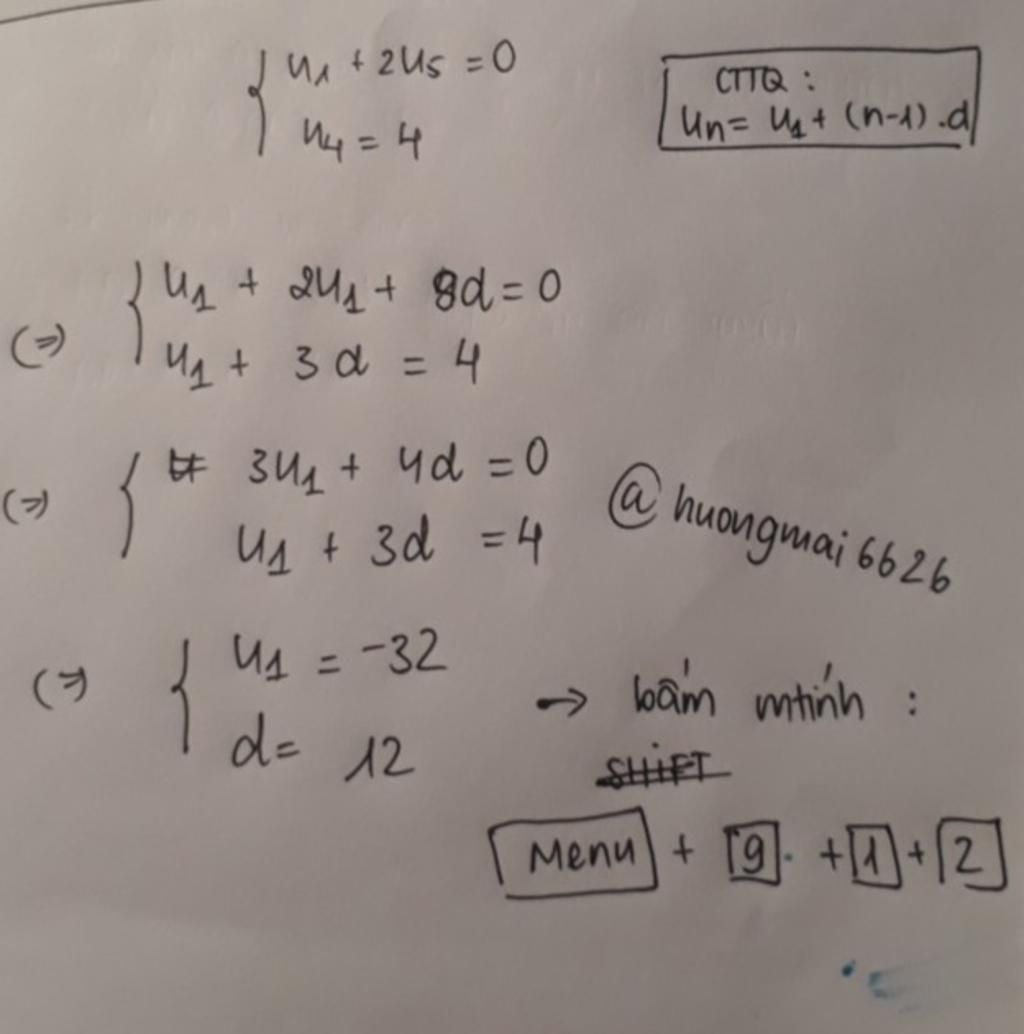 u1 + 2u5 = 0
u4 = 4
CTTQ :
un = u1 + (n-1) .d
(=) u1 + 2u1 + 8d = 0
u1 + 3d = 4
(=) 3u1 + 4d = 0
u1 + 3d = 4
@huongmai6626
(=) u1 = -32
d = 12
→ bấm mtính :
SHIFT
Menu + 9 + 1 + 2